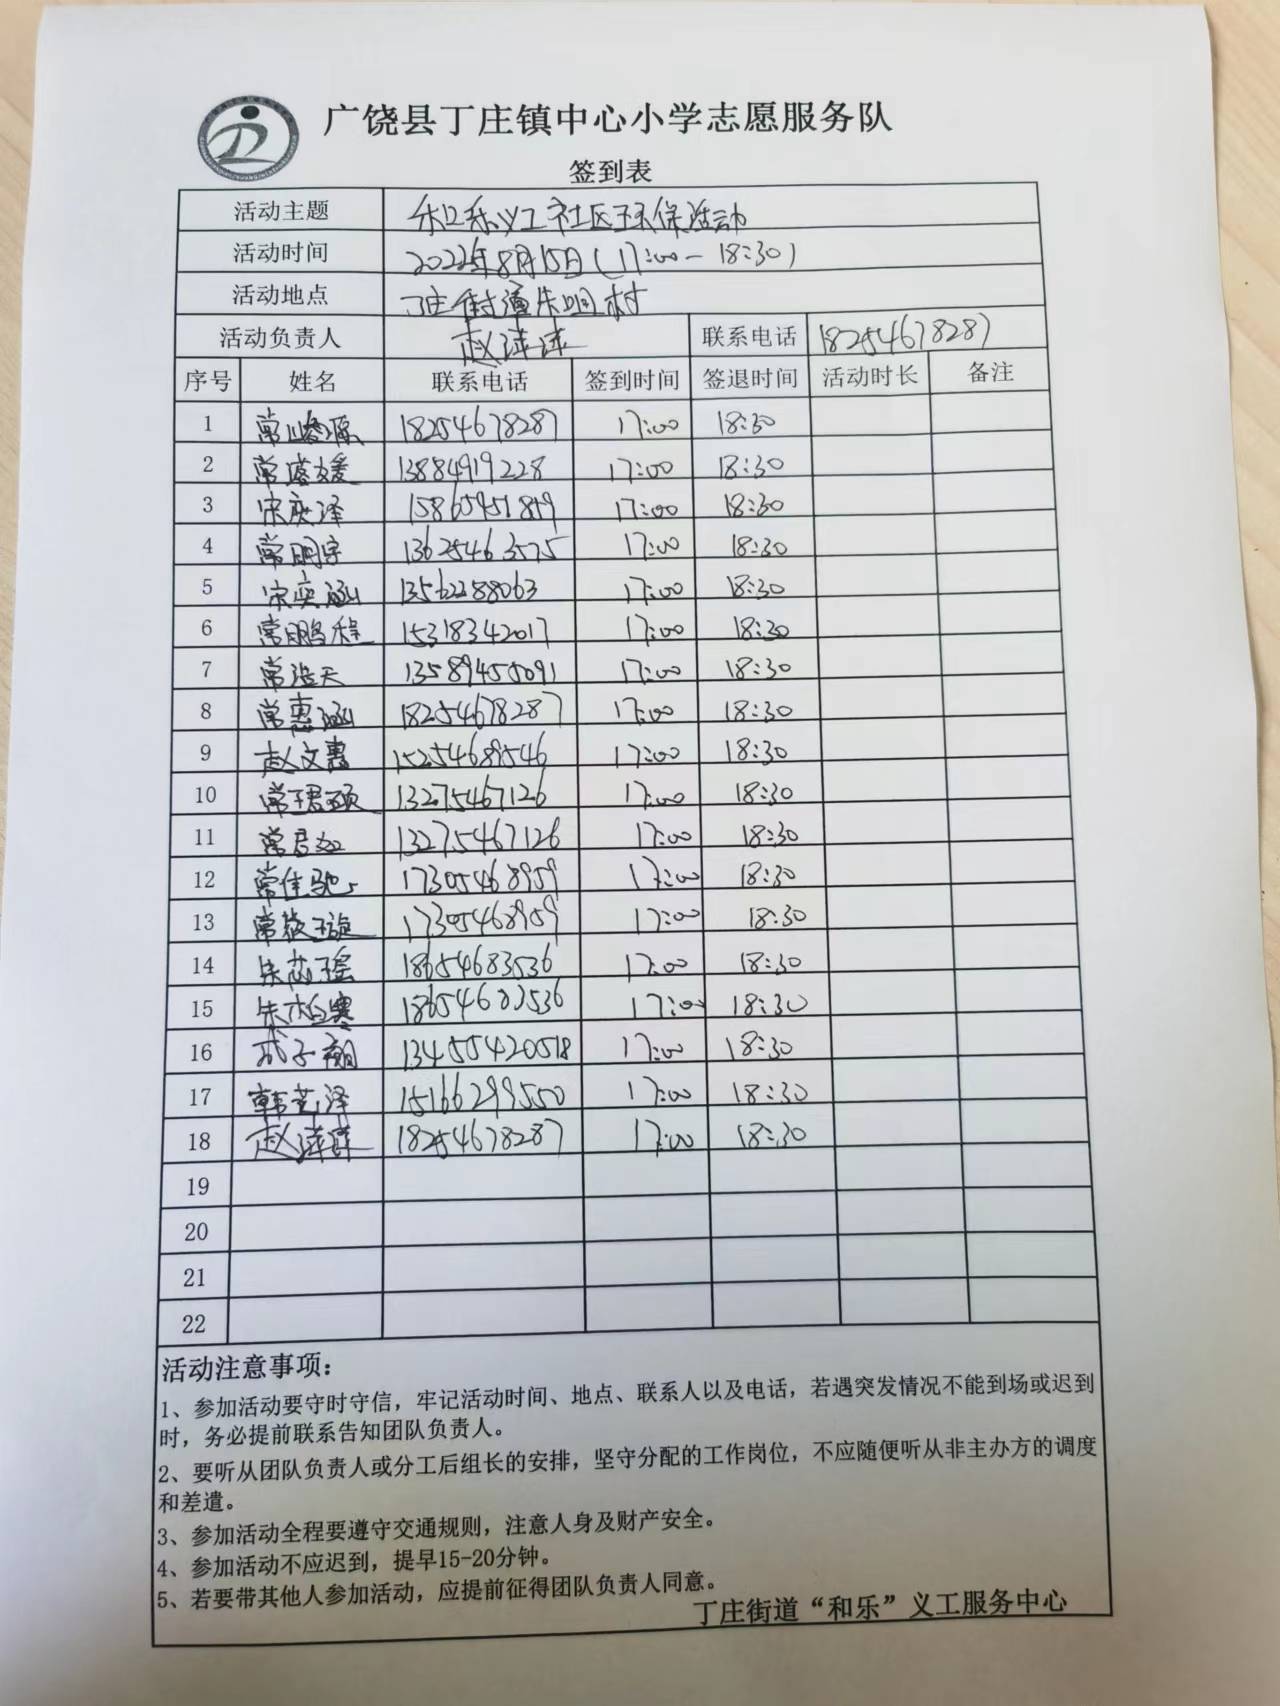 广饶县丁庄镇中心小学志愿服务队
签到表
活动主题 和乐义工社区环保活动
活动时间 2022年8月15日(17:00-18:30)
活动地点 丁庄街道朱疃村
活动负责人 赵萍萍 联系电话 18254678287
序号 姓名 联系电话 签到时间 签退时间 活动时长 备注
1 常源 18254678287 17:00 18:30
2 常媛 13884919228 17:00 18:30
3 宋奕泽 15865951819 17:00 18:30
4 常明宇 13625463575 17:00 18:30
5 宋奕涵 13562288063 17:00 18:30
6 常鹏程 15318342017 17:00 18:30
7 常浩天 13589455091 17:00 18:30
8 常惠涵 18254678287 17:00 18:30
9 赵文惠 15254689546 17:00 18:30
10 常君硕 13275467126 17:00 18:30
11 常君 13275467126 17:00 18:30
12 常佳驰 17305468959 17:00 18:30
13 常筱璇 17305468959 17:00 18:30
14 朱芯瑶 18654683536 17:00 18:30
15 朱柏骞 18654683536 17:00 18:30
16 成子翔 13455420518 17:00 18:30
17 韩艺泽 15166299550 17:00 18:30
18 赵萍萍 18254678287 17:00 18:30
19
20
21
22
活动注意事项：
1、参加活动要守时守信，牢记活动时间、地点、联系人以及电话，若遇突发情况不能到场或迟到
时，务必提前联系告知团队负责人。
2、要听从团队负责人或分工后组长的安排，坚守分配的工作岗位，不应随便听从非主办方的调度
和差遣。
3、参加活动全程要遵守交通规则，注意人身及财产安全。
4、参加活动不应迟到，提早15-20分钟。
5、若要带其他人参加活动，应提前征得团队负责人同意。
丁庄街道“和乐”义工服务中心